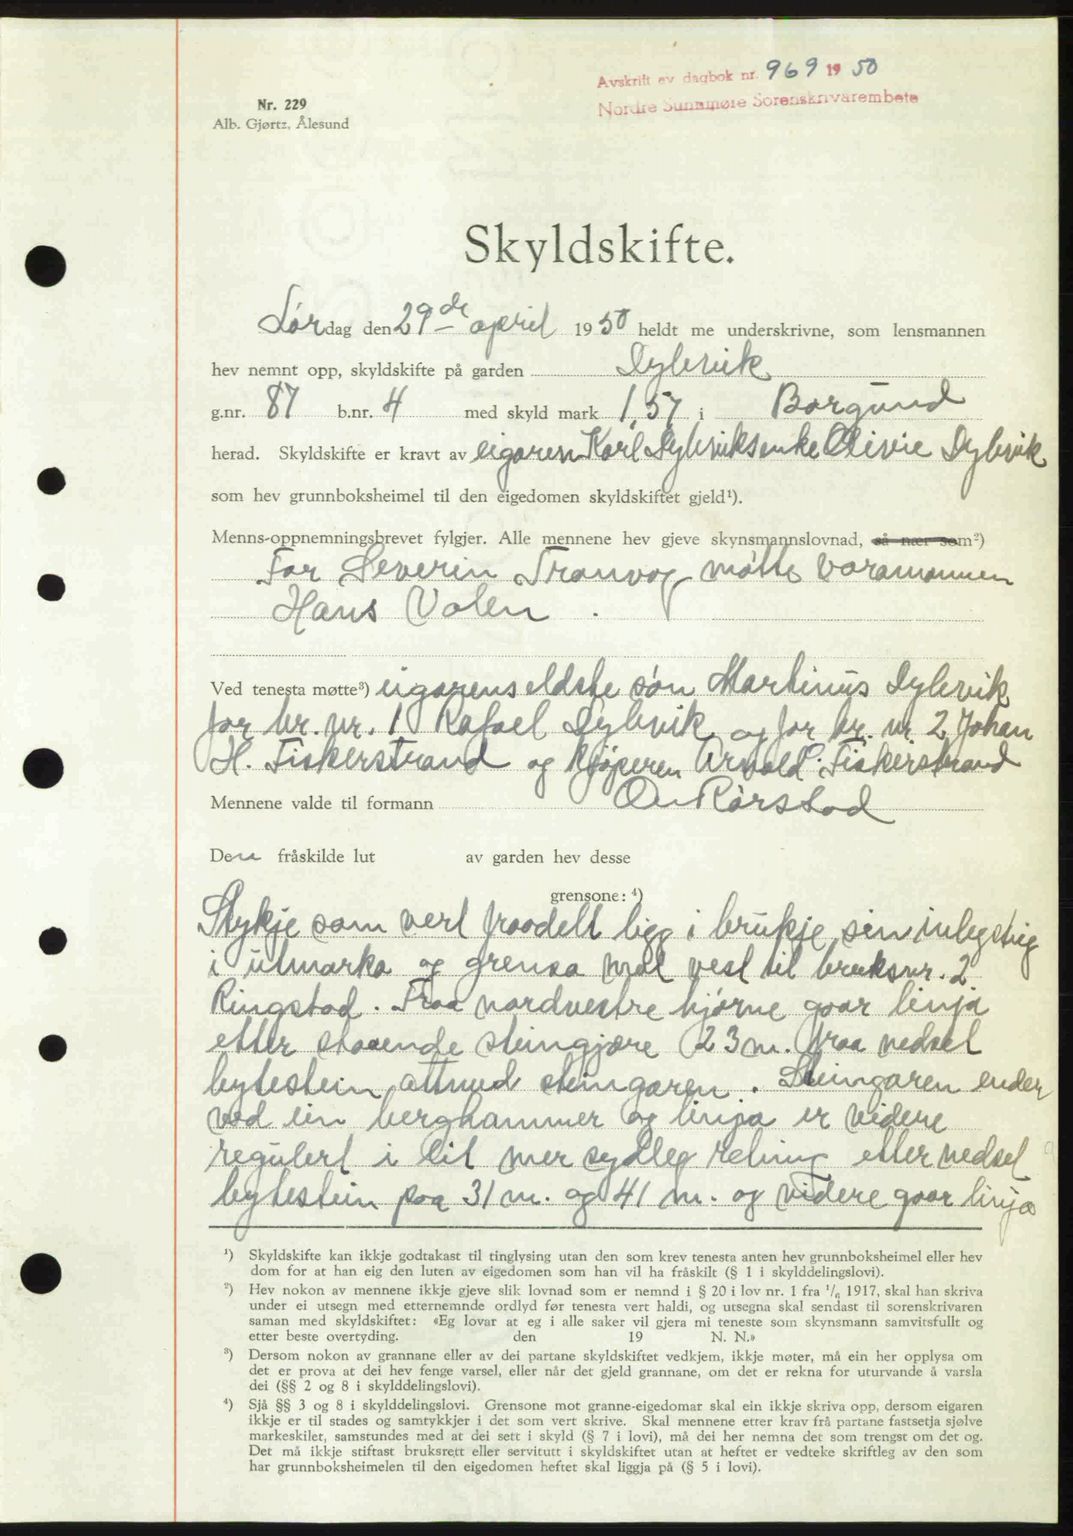 Avskrift av dagbok nr. 969 1950
Nordre Sunnmøre Sorenskrivarembete
Nr. 229
Alb. Gjørtz, Ålesund
Skyldskifte.
Lørdag den 29de april 1950 heldt me underskrivne, som lensmannen
hev nemnt opp, skyldskifte på garden Dybvik
g.nr. 87 b.nr. 4 med skyld mark 1,57 i Borgund
herad. Skyldskifte er kravt av eigaren Karl Dybviks enke Olivie Dybvik
som hev grunnboksheimel til den eigedomen skyldskiftet gjeld¹).
Menns-oppnemningsbrevet fylgjer. Alle mennene hev gjeve skynsmannslovnad, så nær som²)
For Severin Tranvåg møtte varamannen
Hans Valen.
Ved tenesta møtte³) eigarens eldste søn Martinus Dybvik
for br. nr. 1 Rafael Dybvik og for br. nr 2 Johan
H. Fiskerstrand og kjøperen Arnold Fiskerstrand
Mennene valde til formann Rørstad
Den fråskilde lut av garden hev desse
grensone: ⁴)
Stykje som vert fraadelt ligg i brukje sin
i utmarka og grensa mot vest til bruksnr. 2
Ringstad. Fraa nordvestre hjørne gaar linja
etter staaende steingjære 23 m. fraa nedsel
bytestein attmed steingaren. Steingaren ender
ved ein berghammer og linja er videre
regulert i lit mer sydleg retning etter nedsel
bytestein paa 31 m. og 41 m. og videre gaar linja
¹) Skyldskifte kan ikkje godtakast til tinglysing utan den som krev tenesta anten hev grunnboksheimel eller hev
dom for at han eig den luten av eigedomen som han vil ha fråskilt (§ 1 i skylddelingslovi).
²) Hev nokon av mennene ikkje gjeve slik lovnad som er nemnd i § 20 i lov nr. 1 fra 1/6 1917, skal han skriva
under ei utsegn med etternemnde ordlyd før tenesta vert haldi, og utsegna skal sendast til sorenskrivaren
saman med skyldskiftet: «Eg lovar at eg i alle saker vil gjera mi teneste som skynsmann samvitsfullt og
etter beste overtyding. den 19 N. N.»
³) Dersom nokon av grannane eller av dei partane skyldskiftet vedkjem, ikkje møter, må ein her opplysa om
det er prova at dei hev fenge varsel, eller når det gjeld grannane, om det er rekna for uturvande å varsla
dei (§§ 2 og 8 i skylddelingslovi).
⁴) Sjå §§ 3 og 8 i skylddelingslovi. Grensone mot granne-eigedomar skal ein ikkje skriva opp, dersom eigaren
ikkje er til stades og samtykkjer i det som vert skrive. Skal mennene etter krav frå partane fastsetja sjølve
markeskilet, samstundes med at dei sett i skyld (§ 7 i lovi), må dei her nemna det som trengst om det og.
Det må ikkje stiftast bruksrett eller servitutt i skyldskiftet utan at heftet er vedteke skriftleg av den som
har grunnboksheimelen til den eigedomen heftet skal liggja på (§ 5 i lovi).